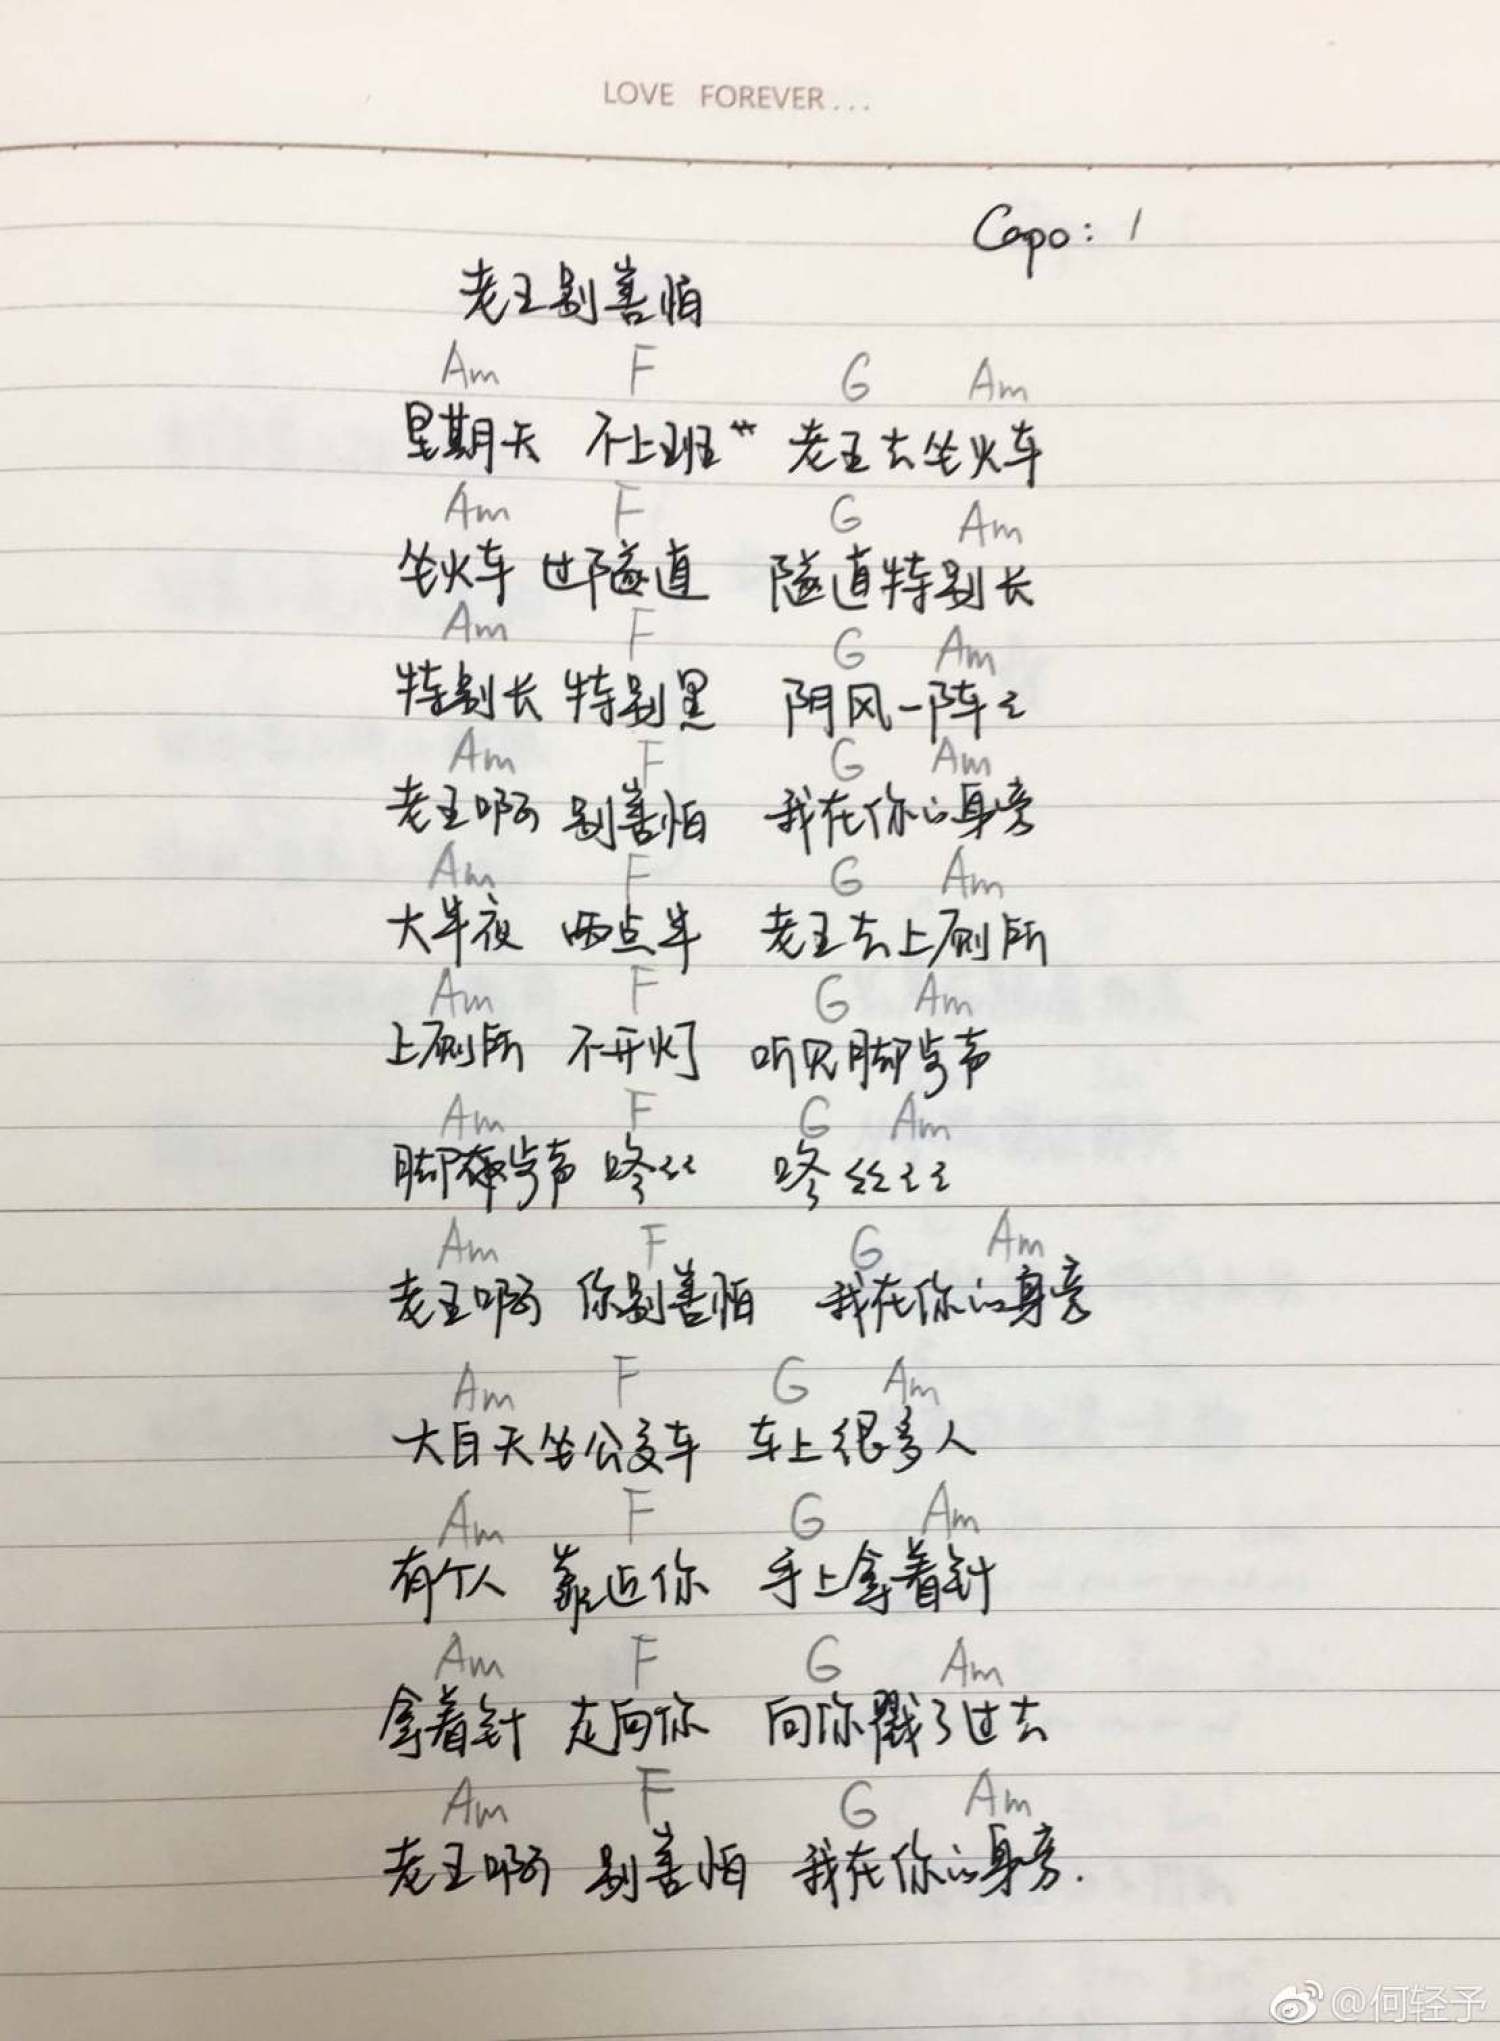 LOVE FOREVER...
Capo: 1
老王别害怕
Am F G Am
星期天 不上班 老王去坐火车
Am F G Am
坐火车 过隧道 隧道特别长
Am F G Am
特别长 特别黑 阴风一阵々
Am F G Am
老王啊 别害怕 我在你的身旁
Am F G Am
大半夜 两点半 老王去上厕所
Am F G Am
上厕所 不开灯 听见脚步声
Am F G Am
脚步声 咚々々 咚々々々々
Am F G Am
老王啊 你别害怕 我在你的身旁
Am F G Am
大白天坐公交车 车上很多人
Am F G Am
有个人 靠近你 手上拿着针
Am F G Am
拿着针 走向你 向你戳了过去
Am F G Am
老王啊 别害怕 我在你的身旁.
@何轻予